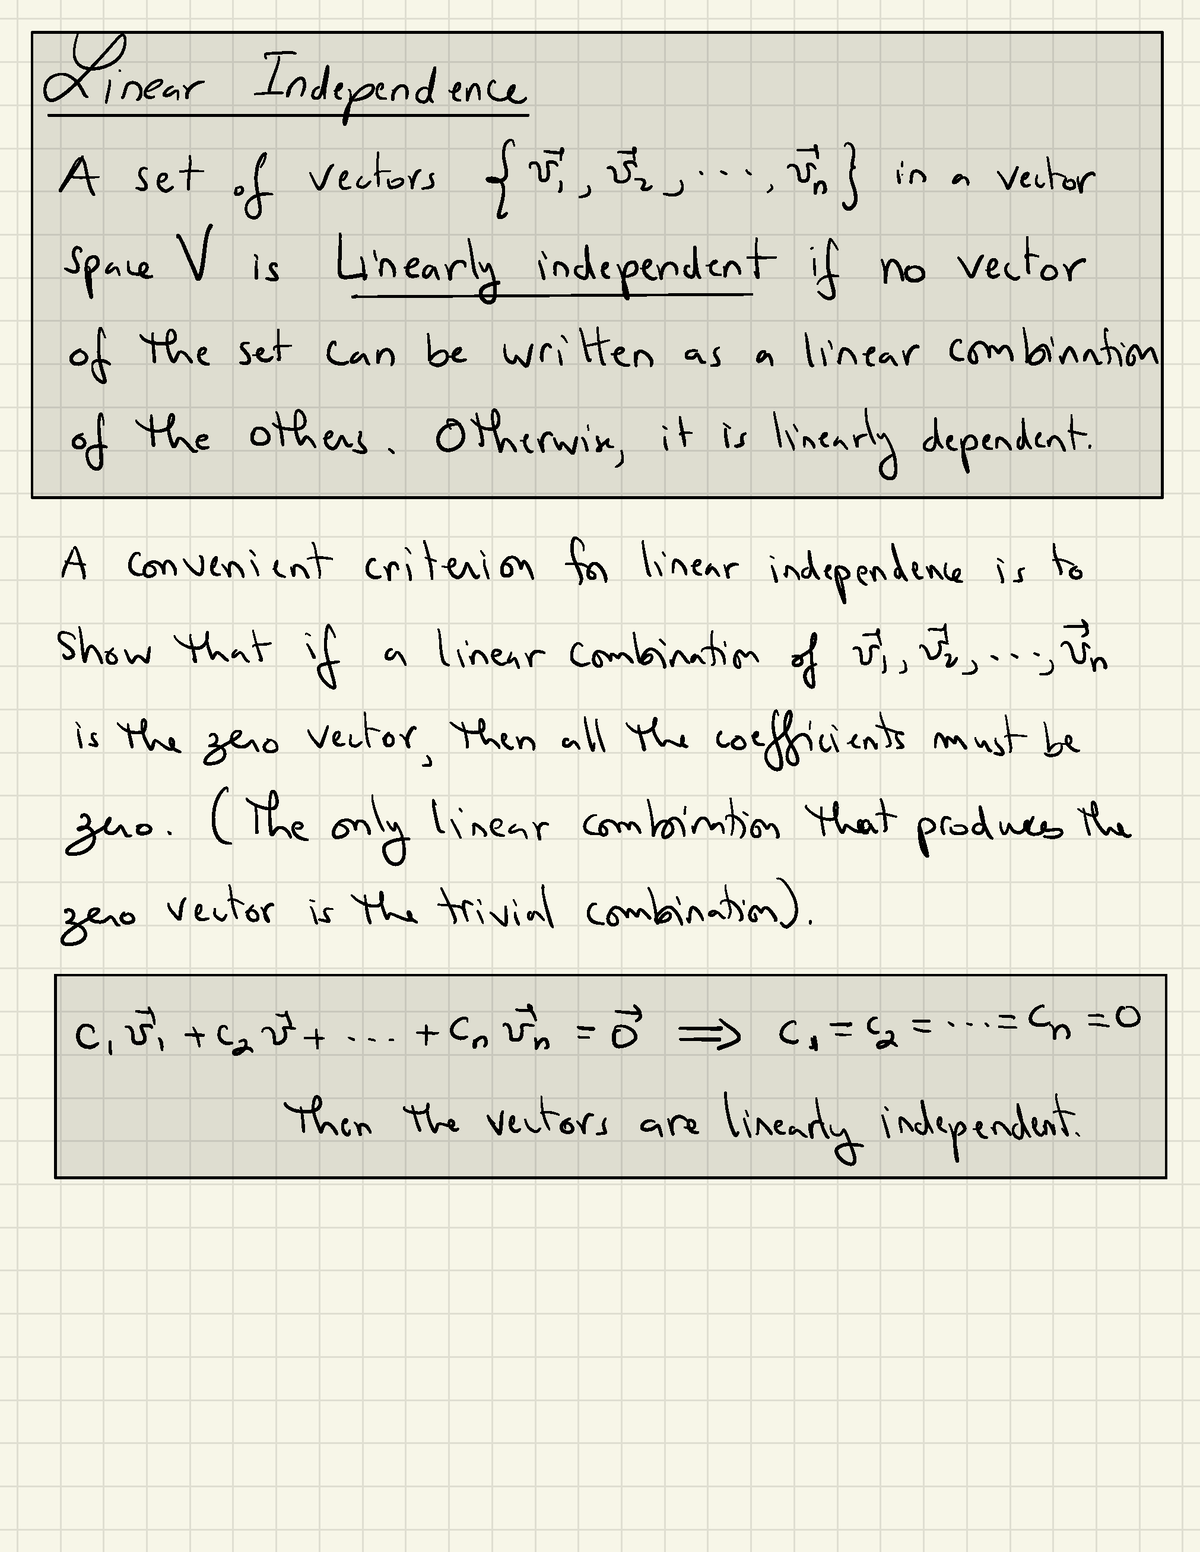 Linear Independence
A set of vectors {v⃗₁, v⃗₂, ..., v⃗ₙ} in a vector
space V is Linearly independent if no vector
of the set can be written as a linear combination
of the others. Otherwise, it is linearly dependent.
A convenient criterion for linear independence is to
show that if a linear combination of v⃗₁, v⃗₂, ..., v⃗ₙ
is the zero vector, then all the coefficients must be
zero. (The only linear combination that produces the
zero vector is the trivial combination).
c₁v⃗₁ + c₂v⃗ + ... + cₙv⃗ₙ = 0⃗ ⟹ c₁ = c₂ = ... = cₙ = 0
Then the vectors are linearly independent.